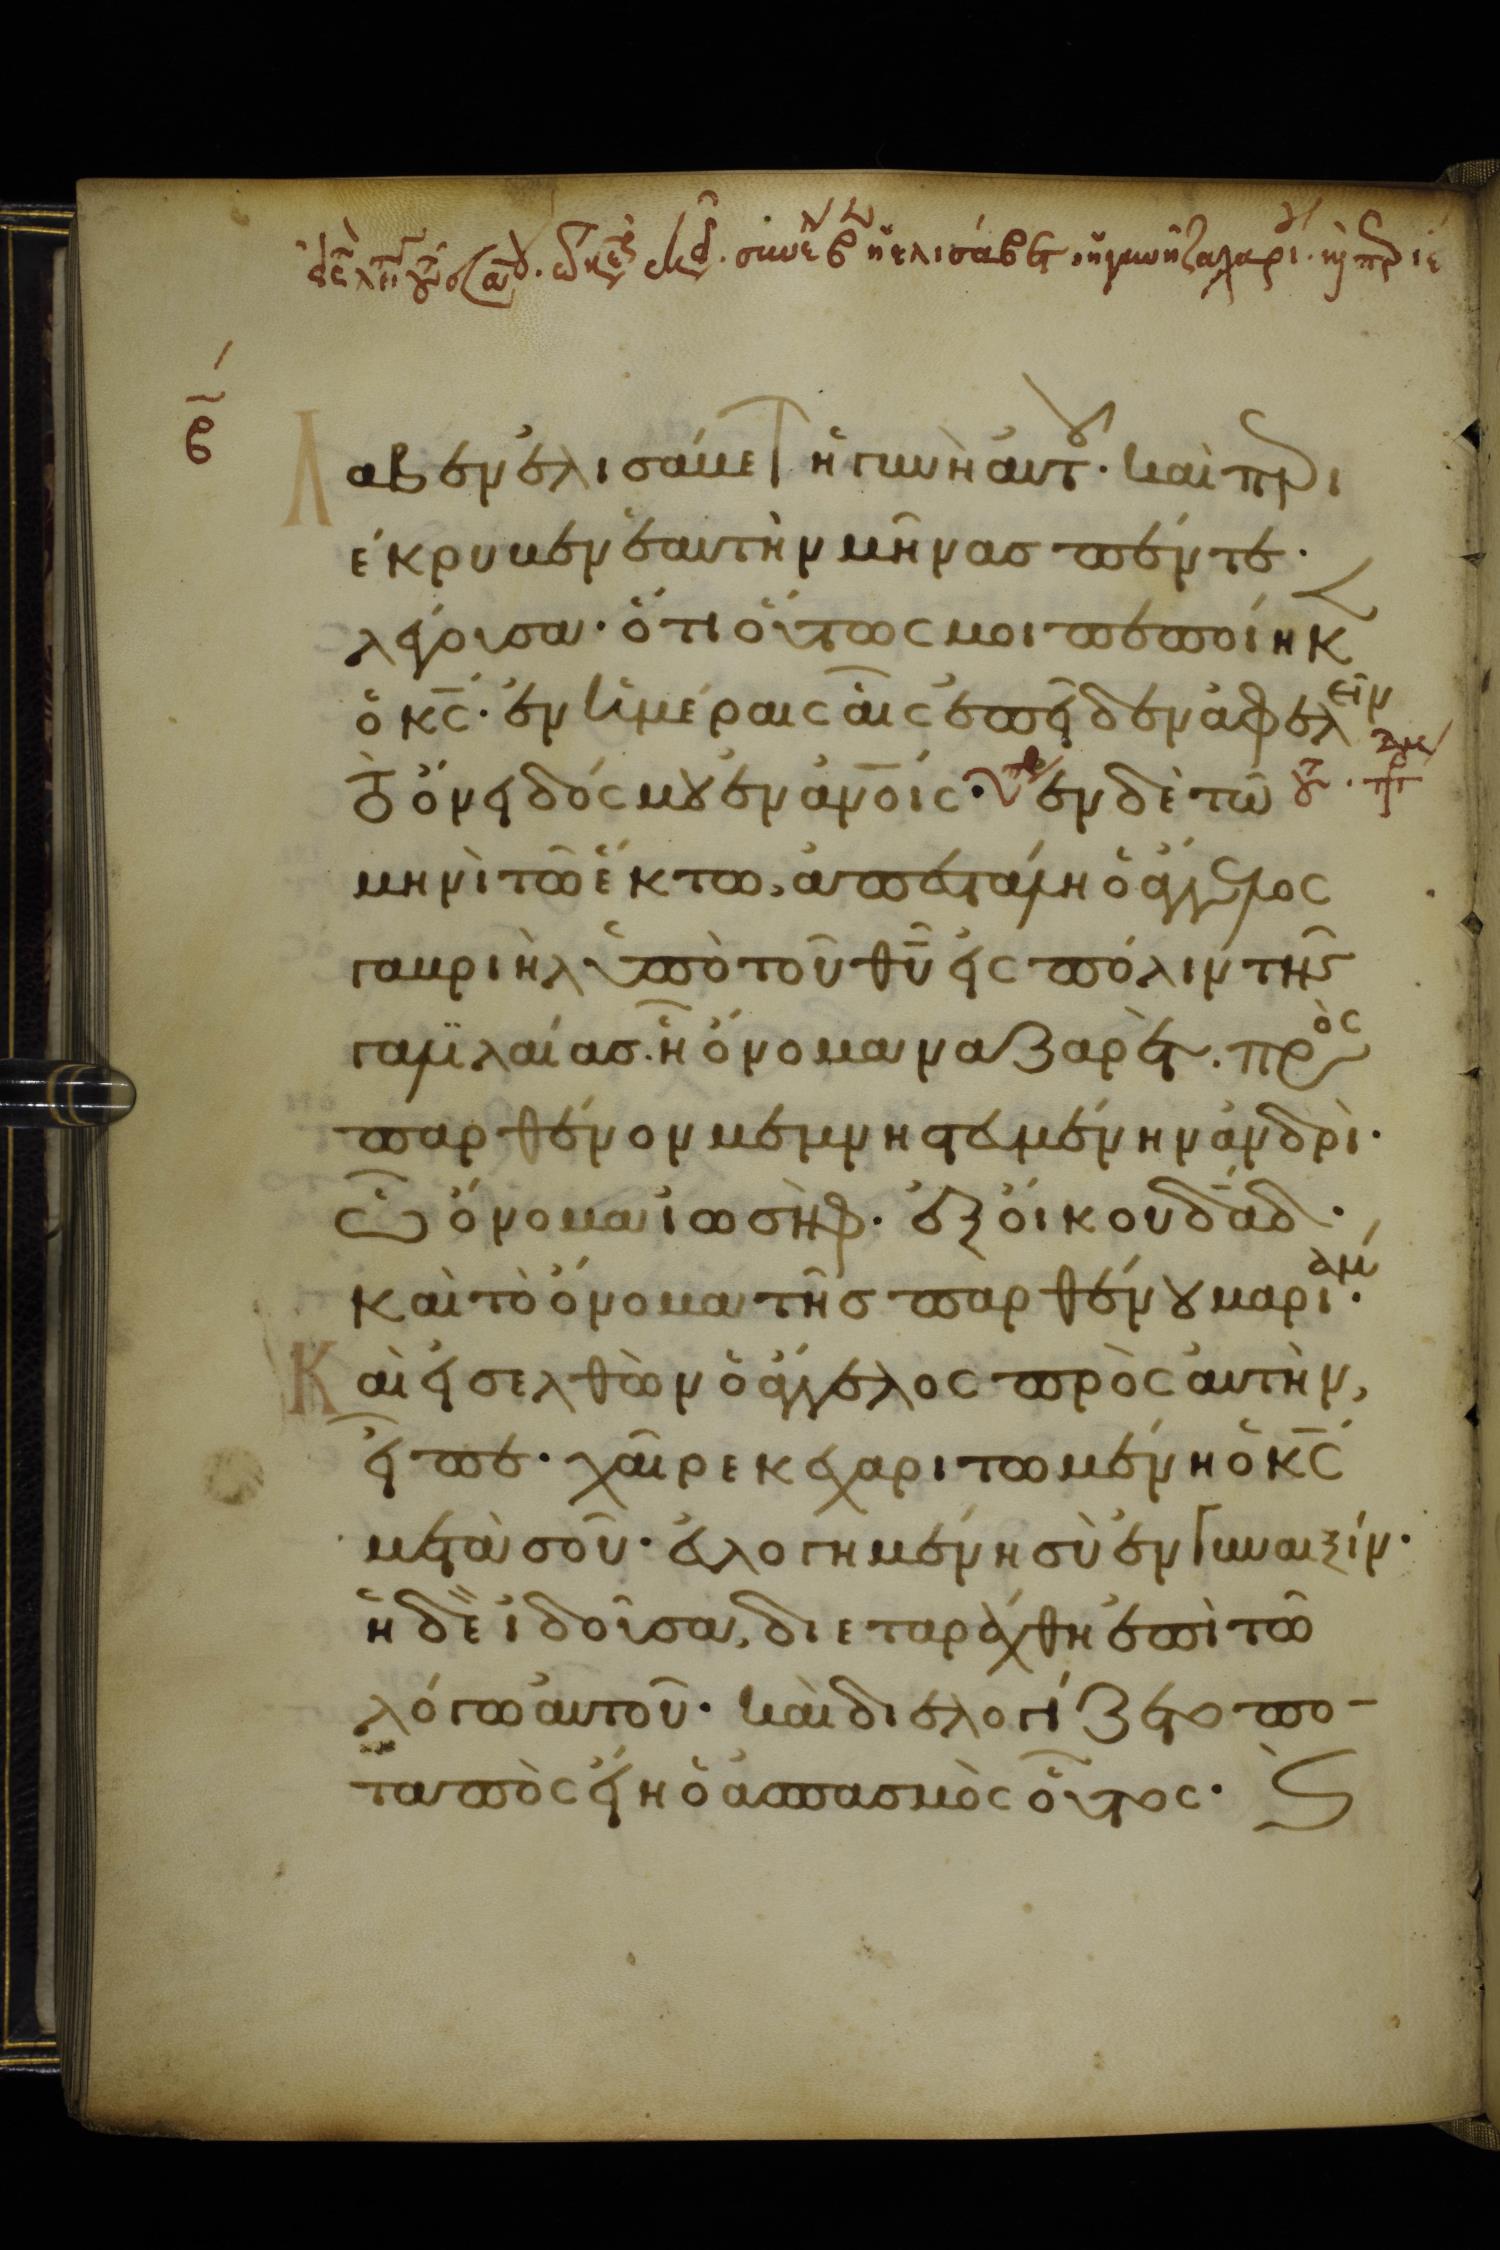 συνέλαβεν ἡ ἐλισάβετ ἡ γυνὴ ζαχαρίου· καὶ περιέ
β
λαβεν ἐλισάβετ ἡ γυνὴ αὐτοῦ· καὶ περι
έκρυβεν ἑαυτὴν μῆνας πέντε·
λέγουσα· ὅτι οὕτως μοι πεποίηκεν
ὁ κς· ἐν ἡμέραις αἷς ἐπεῖδεν ἀφελεῖν
τὸ ὄνειδός μου ἐν ἀνοις· ἐν δὲ τῶ
μηνὶ τῶ ἕκτω, ἀπεστάλη ὁ ἄγγελος
γαβριὴλ ὑπὸ τοῦ θυ εἰς πόλιν τῆς
γαλιλαίας· ἧ ὄνομα ναζαρὲτ· πρὸς
παρθένον μεμνηστευμένην ἀνδρὶ·
ὧ ὄνομα ἰωσὴφ· ἐξ οἴκου δαδ·
καὶ τὸ ὄνομα τῆς παρθένου μαριάμ·
Καὶ εἰσελθὼν ὁ ἄγγελος πρὸς αὐτὴν,
εἶπε· χαῖρε κεχαριτωμένη ὁ κς
μετὰ σοῦ· εὐλογημένη σὺ ἐν γυναιξίν·
ἡ δὲ ἰδοῦσα, διεταράχθη ἐπὶ τῶ
λόγω αὐτοῦ· καὶ διελογίζετο πο-
ταπὸς εἴη ὁ ἀσπασμὸς οὗτος·